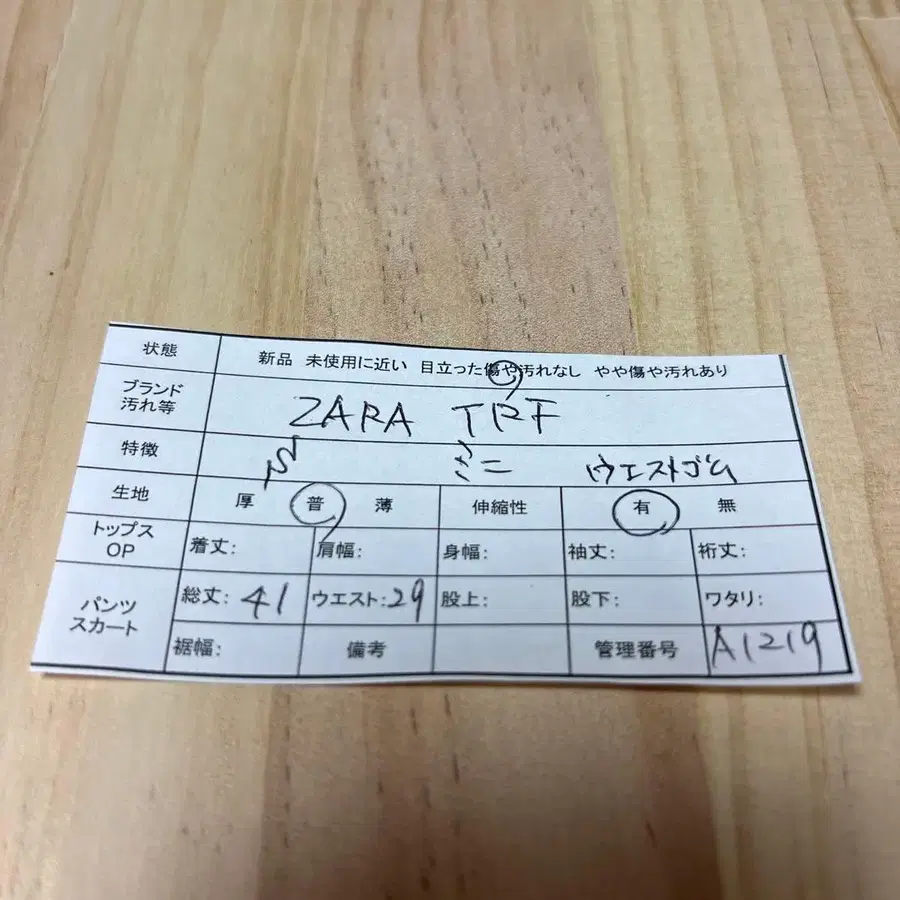 状態 新品 未使用に近い 目立った傷や汚れなし やや傷や汚れあり
ブランド
汚れ等 ZARA TRF
特徴 ミニ ウエストゴム
生地 厚 普 薄 伸縮性 有 無
トップス
OP 着丈: 肩幅: 身幅: 袖丈: 裄丈:
パンツ
スカート 総丈: 41 ウエスト: 29 股上: 股下: ワタリ:
裾幅: 備考 管理番号 A1219